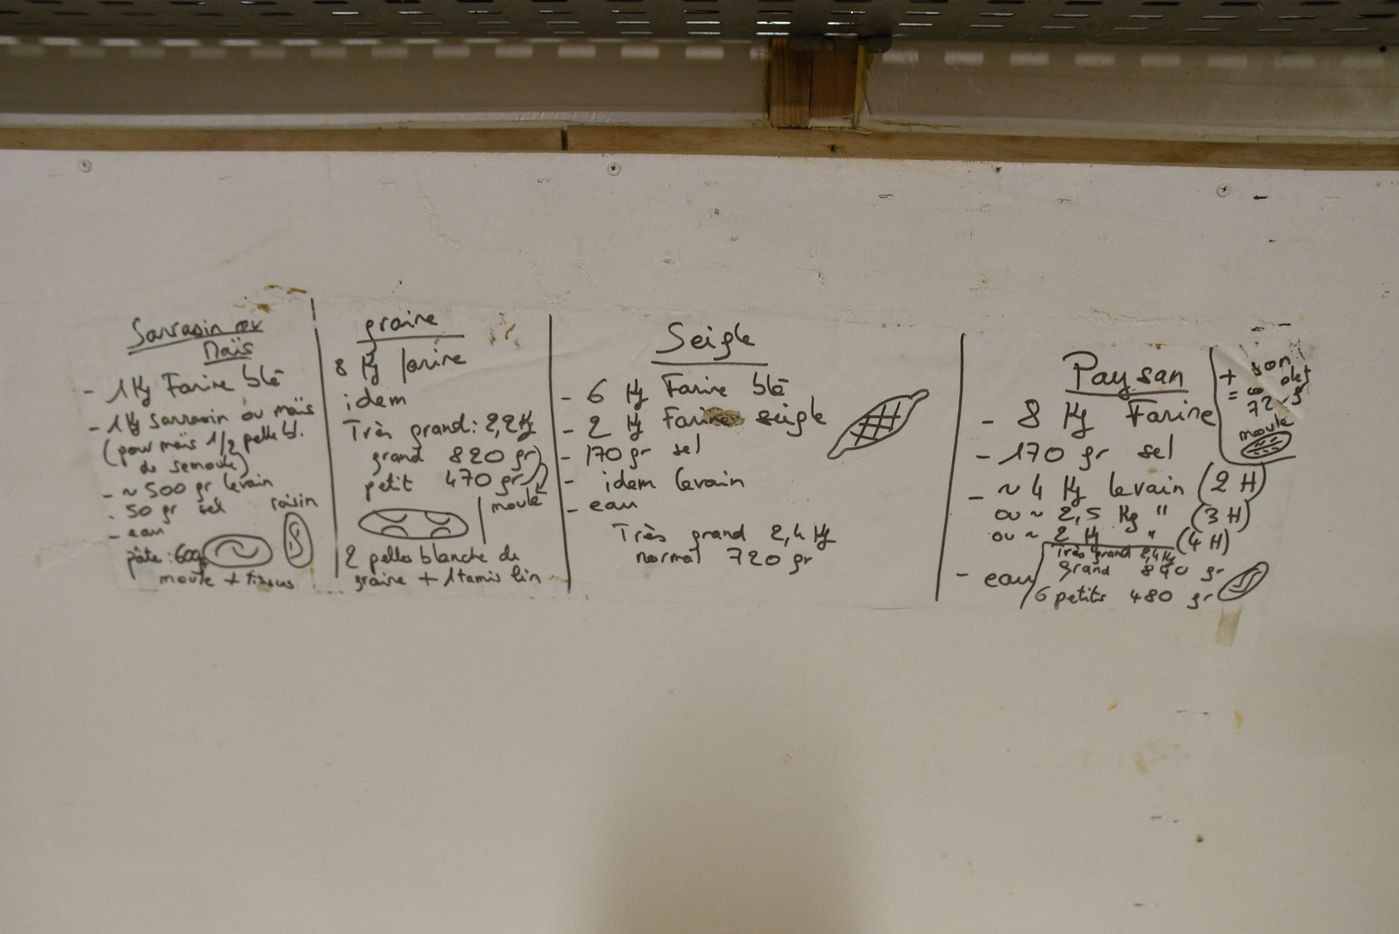 Sarrasin ou
Maïs
- 1 Kg Farine blé
- 1 Kg Sarrasin ou maïs
(pour maïs 1/2 pelle bl.
de semoule)
- ~ 500 gr levain
- 50 gr sel
raisin
- eau
pâte : 600g
moule + tissus
graine
8 Kg farine
idem
Très grand : 2,2 Kg
grand 820 gr
petit 470 gr
moule
2 pelles blanche de
graine + 1 tamis lin
Seigle
- 6 Kg Farine blé
- 2 Kg Farine seigle
- 170 gr sel
- idem levain
- eau
Très grand 2,4 Kg
normal 720 gr
Paysan
- 8 Kg Farine
- 170 gr sel
- ~ 4 Kg levain (2 H)
ou ~ 2,5 Kg " (3 H)
ou ~ 2 Kg " (4 H)
Très grand 2,4 Kg
- eau
grand 840 gr
6 petits 480 gr
+ son
= complet
72 g
moule